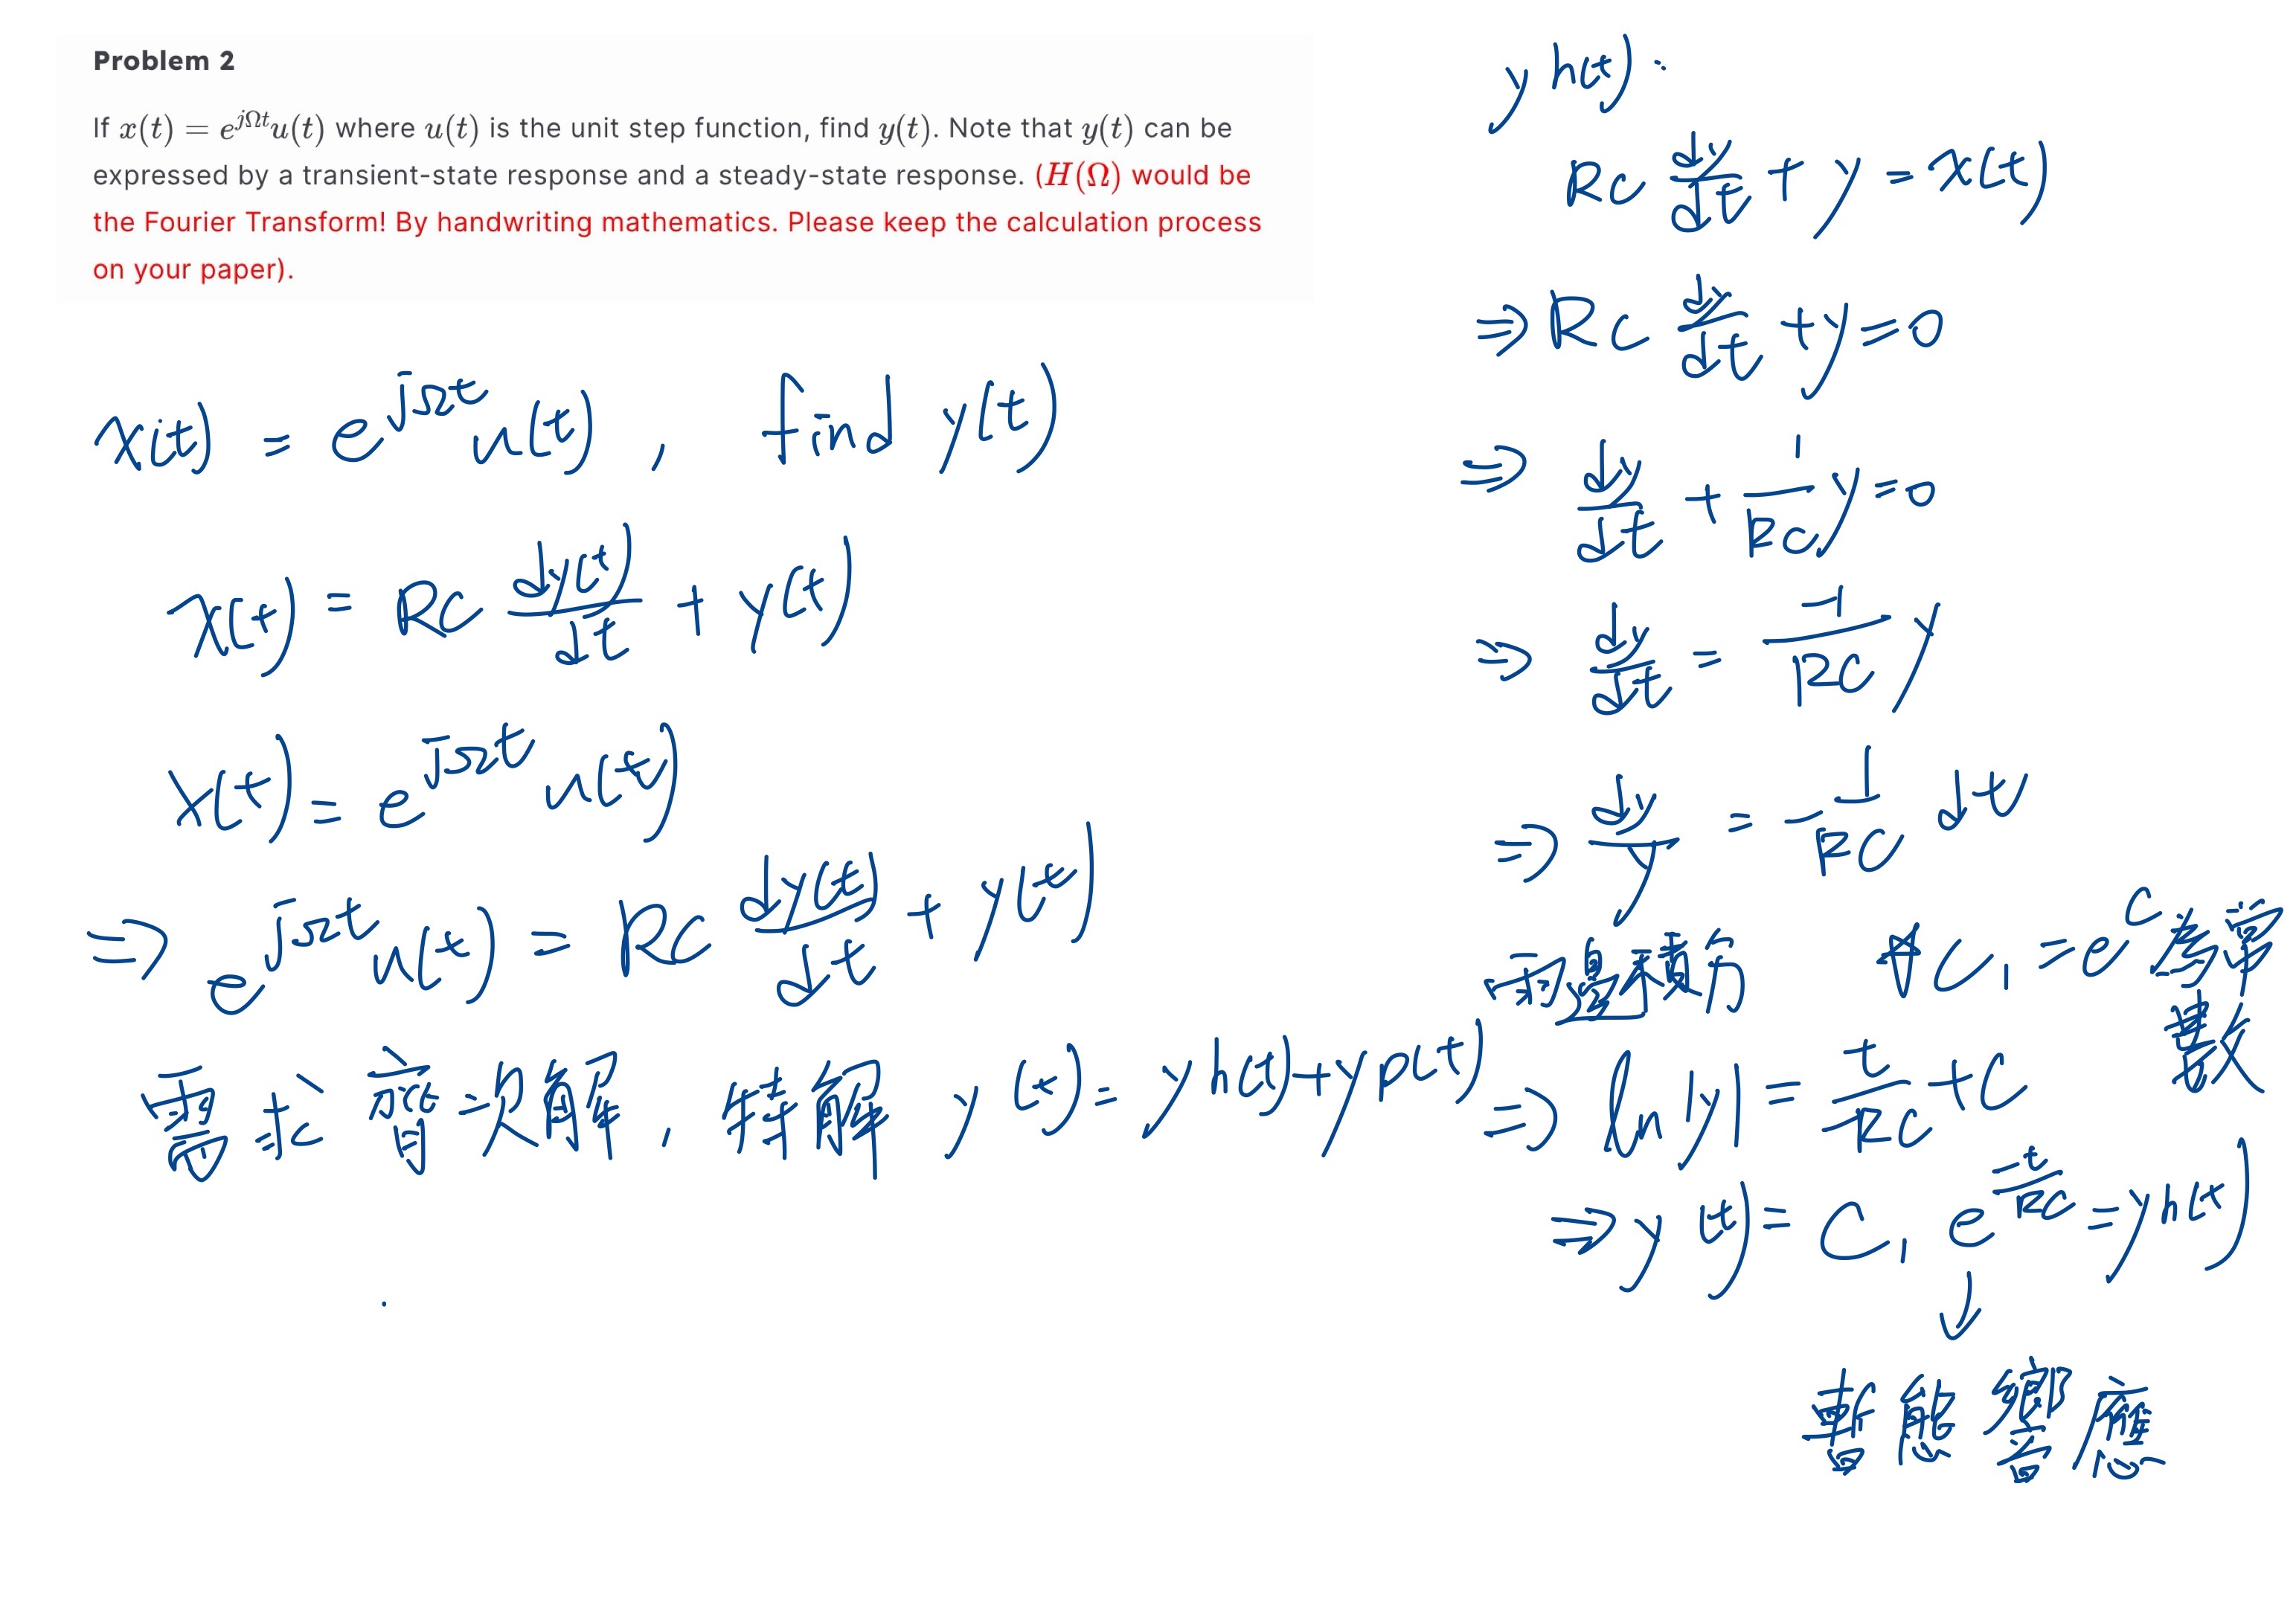 Problem 2
If x(t) = e^{jΩt}u(t) where u(t) is the unit step function, find y(t). Note that y(t) can be
expressed by a transient-state response and a steady-state response. (H(Ω) would be
the Fourier Transform! By handwriting mathematics. Please keep the calculation process
on your paper).
x(t) = e^{jΩt} u(t) , find y(t)
x(t) = RC dy(t)/dt + y(t)
x(t) = e^{jΩt} u(t)
⇒ e^{jΩt} u(t) = RC dy(t)/dt + y(t)
需求齊次解, 特解 y(t) = yh(t)+yp(t)
yh(t):
RC dy/dt + y = x(t)
⇒ RC dy/dt + y = 0
⇒ dy/dt + 1/RC y = 0
⇒ dy/dt = -1/RC y
⇒ dy/y = -1/RC dt
兩邊積分
C₁ = e^C 為常
數
⇒ ln|y| = t/-RC + C
⇒ y(t) = C₁ e^{-t/RC} = yh(t)
↓
暫態響應